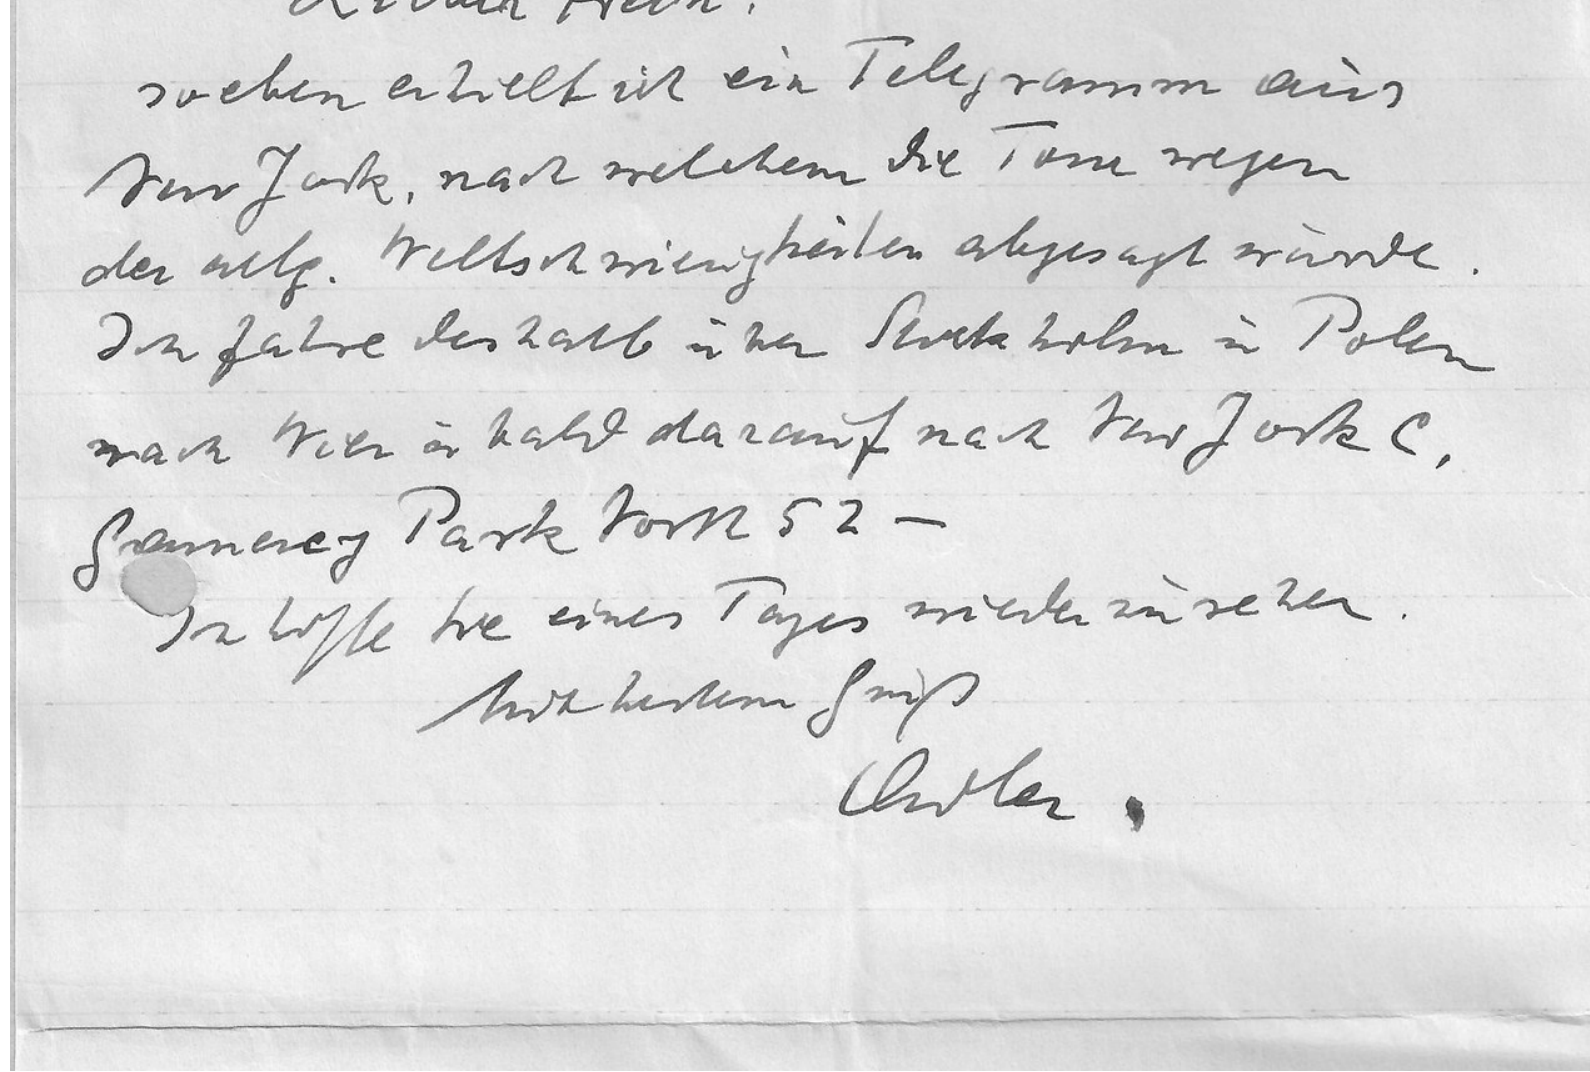 soeben erhielt ich ein Telegramm aus
New Jork, nach welchem die Tour wegen
der allg. Weltschwierigkeiten abgesagt wurde.
Ich fahre deshalb über Stockholm u Polen
nach Wien u bald darauf nach New Jork C,
Gramercy Park North 52 —
Ich hoffe Sie eines Tages wiederzusehen.
Mit bestem Gruß
Adler.